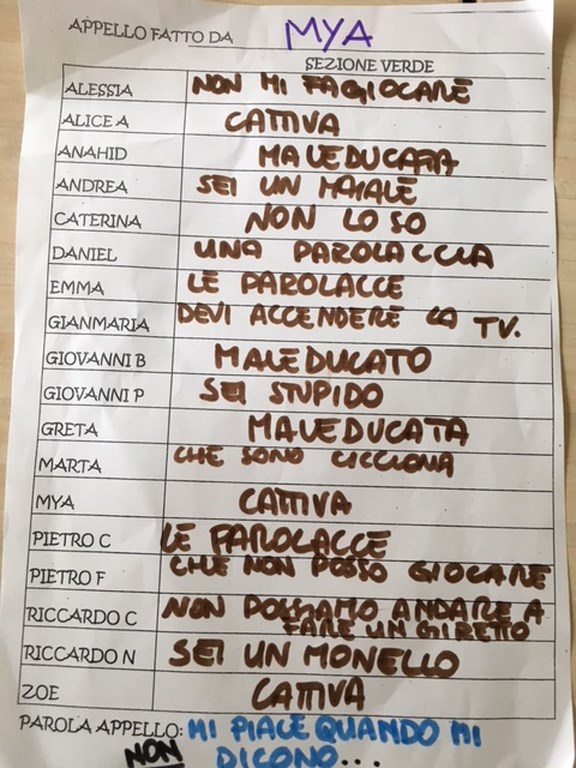 APPELLO FATTO DA MYA
SEZIONE VERDE
ALESSIA NON MI FA GIOCARE
ALICE A CATTIVA
ANAHID MALEDUCATA
ANDREA SEI UN MAIALE
CATERINA NON LO SO
DANIEL UNA PAROLACCIA
EMMA LE PAROLACCE
GIANMARIA DEVI ACCENDERE LA TV.
GIOVANNI B MALEDUCATO
GIOVANNI P SEI STUPIDO
GRETA MALEDUCATA
MARTA CHE SONO CICCIONA
MYA CATTIVA
PIETRO C LE PAROLACCE
PIETRO F CHE NON POSSO GIOCARE
RICCARDO C NON POSSIAMO ANDARE A
FARE UN GIRETTO
RICCARDO N SEI UN MONELLO
ZOE CATTIVA
PAROLA APPELLO: MI PIACE QUANDO MI
NON DICONO...